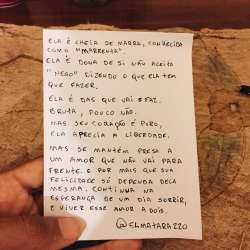 ELA É CHEIA DE MARRA, CONHECIDA
COMO "MARRENTA".
ELA É DONA DE SI NÃO ACEITA
"NEGO" DIZENDO O QUE ELA TEM
QUE FAZER.
ELA É DAS QUE VAI E FAZ.
BRUTA, POUCO NÃO.
MAS SEU CORAÇÃO É PURO,
ELA APRECIA A LIBERDADE.
MAS SE MANTÉM PRESA A
UM AMOR QUE NÃO VAI PARA
FRENTE. E POR MAIS QUE SUA
FELICIDADE SÓ DEPENDA DELA
MESMA. CONTINUA NA
ESPERANÇA DE UM DIA SORRIR,
E VIVER ESSE AMOR A DOIS.
@ELMATARAZZO